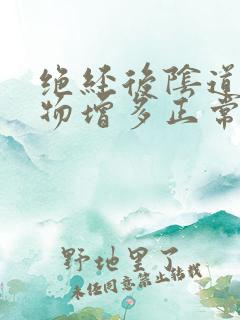 绝经后陰道
物增多正常
野地里了
未经同意禁止转载